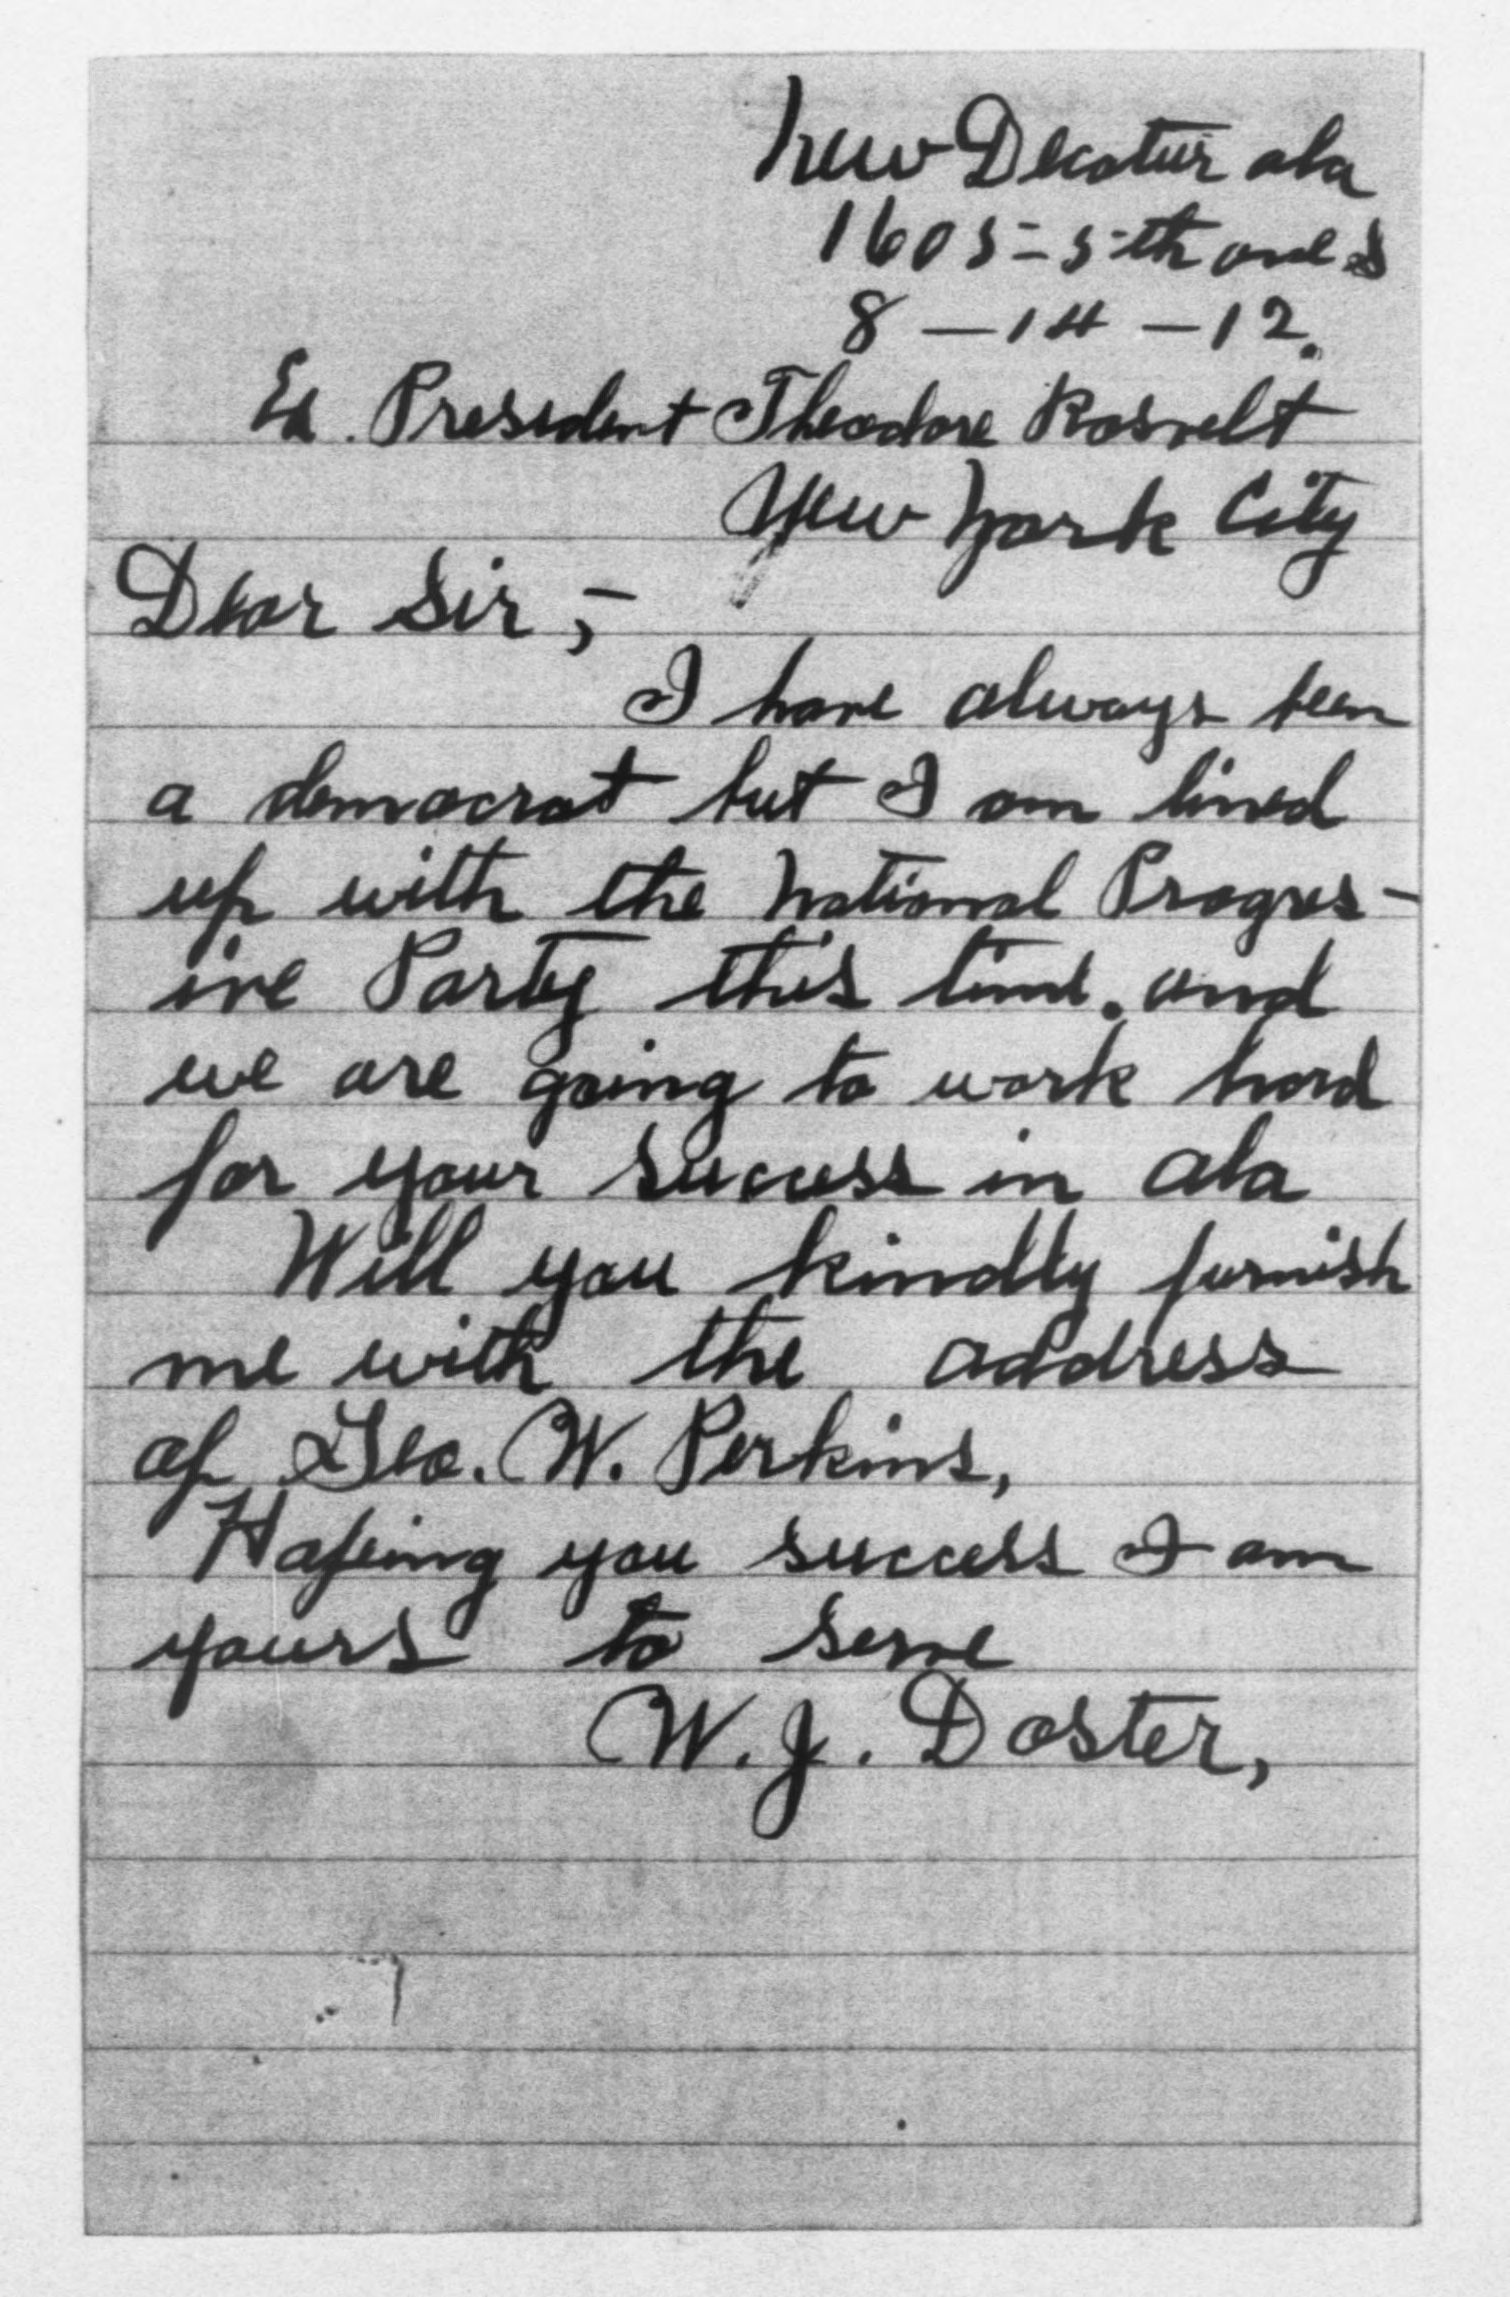 New Decatur ala
1605 = 5th ave S
8 - 14 - 12.
Ex. President Theodore Rosvelt
New York City
Dear Sir,-
I have always been
a democrat but I am lined
up with the National Progres-
ive Party this time. and
we are going to work hard
for your success in ala
Will you kindly furnish
me with the address
of Geo. W. Perkins,
Hopeing you success I am
yours to serve
W. J. Doster,